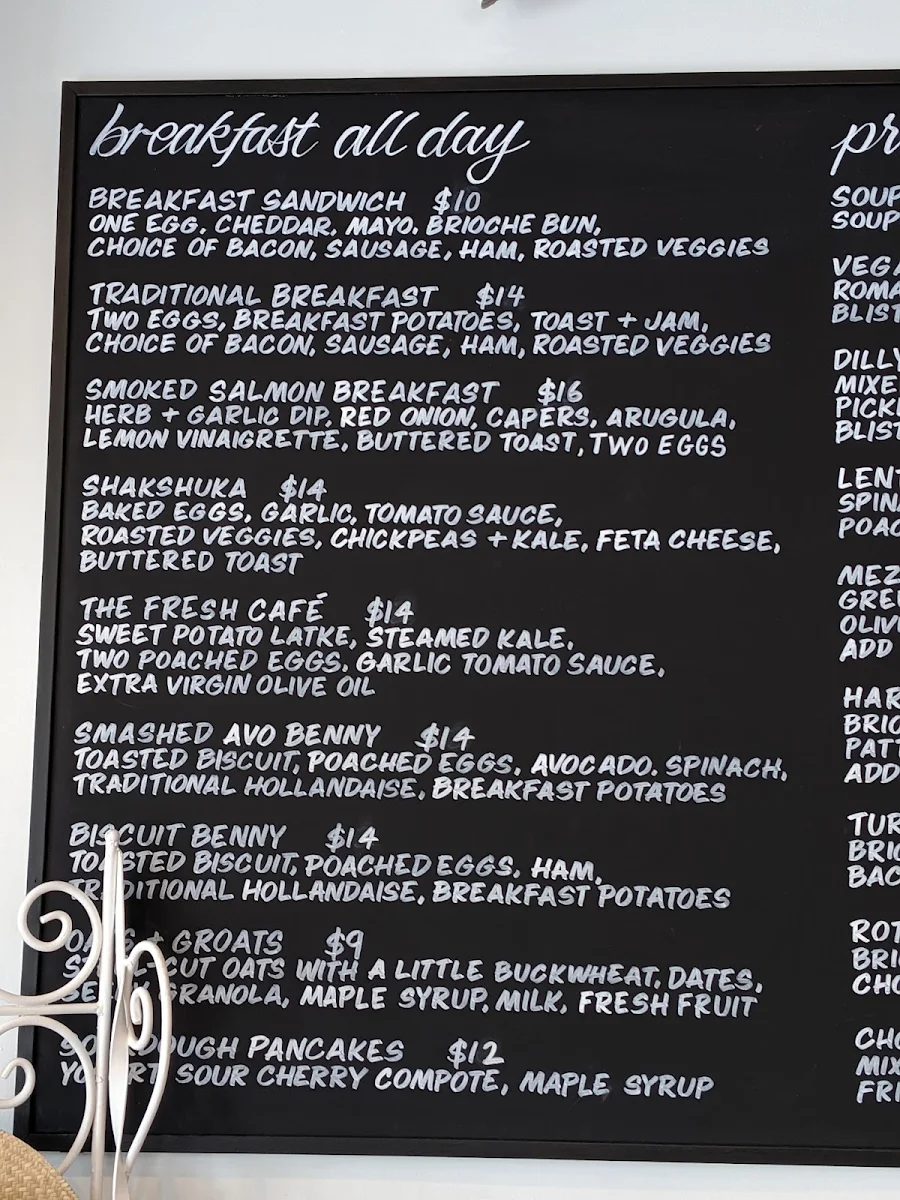 breakfast all day
BREAKFAST SANDWICH $10
ONE EGG, CHEDDAR, MAYO, BRIOCHE BUN,
CHOICE OF BACON, SAUSAGE, HAM, ROASTED VEGGIES
TRADITIONAL BREAKFAST $14
TWO EGGS, BREAKFAST POTATOES, TOAST + JAM,
CHOICE OF BACON, SAUSAGE, HAM, ROASTED VEGGIES
SMOKED SALMON BREAKFAST $16
HERB + GARLIC DIP, RED ONION, CAPERS, ARUGULA,
LEMON VINAIGRETTE, BUTTERED TOAST, TWO EGGS
SHAKSHUKA $14
BAKED EGGS, GARLIC, TOMATO SAUCE,
ROASTED VEGGIES, CHICKPEAS + KALE, FETA CHEESE,
BUTTERED TOAST
THE FRESH CAFÉ $14
SWEET POTATO LATKE, STEAMED KALE,
TWO POACHED EGGS, GARLIC TOMATO SAUCE,
EXTRA VIRGIN OLIVE OIL
SMASHED AVO BENNY $14
TOASTED BISCUIT, POACHED EGGS, AVOCADO, SPINACH,
TRADITIONAL HOLLANDAISE, BREAKFAST POTATOES
BISCUIT BENNY $14
TOASTED BISCUIT, POACHED EGGS, HAM,
TRADITIONAL HOLLANDAISE, BREAKFAST POTATOES
OATS + GROATS $9
STEEL-CUT OATS WITH A LITTLE BUCKWHEAT, DATES,
GRANOLA, MAPLE SYRUP, MILK, FRESH FRUIT
SOURDOUGH PANCAKES $12
YOGURT SOUR CHERRY COMPOTE, MAPLE SYRUP
pr
SOUP
SOUP
VEGA
ROMA
BLIST
DILLY
MIXE
PICKL
BLIST
LENT
SPINA
POAC
MEZ
GREE
OLIV
ADD
HAR
BRIO
PATT
ADD
TUR
BRIO
BAC
ROT
BRIO
CHO
CHO
MIX
FRI